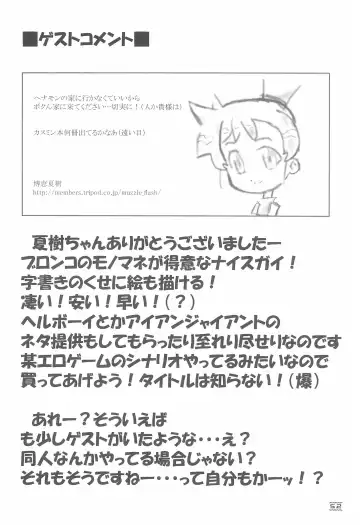 ■ゲストコメント■
ヘナモンの家に行かなくていいから
ボクん家に来てください…切実に！(んか貴様は)
カスミン本何冊出てるかなあ(遠い目)
博恵夏樹
http://members.tripod.co.jp/muzzle_flash/
夏樹ちゃんありがとうございましたー
ブロンコのモノマネが得意なナイスガイ！
字書きのくせに絵も描ける！
凄い！安い！早い！(？)
ヘルボーイとかアイアンジャイアントの
ネタ提供もしてもらったり至れり尽せりなのです
某エロゲームのシナリオやってるみたいなので
買ってあげよう！タイトルは知らない！(爆)
あれー？そういえば
も少しゲストがいたような・・・え？
同人なんかやってる場合じゃない？
それもそうですねー・・・って自分もかーッ！？
52